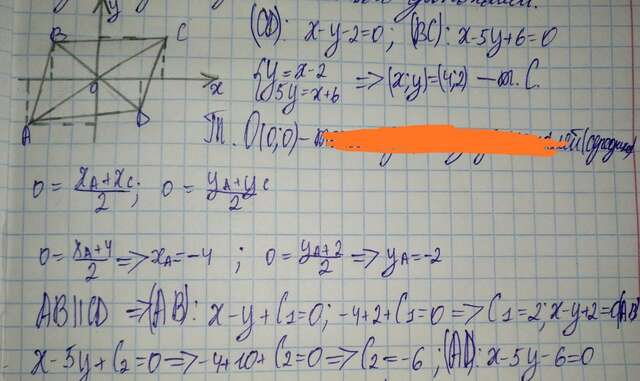 y
B
C
(CD): x-y-2=0; (BC): x-5y+6=0
O
x
{y=x-2
5y=x+6 => (x;y)=(4;2) — т. C.
A
D
Т. O(0;0)-
0 = (xA+xC)/2; 0 = (yA+yC)/2
0 = (xA+4)/2 => xA=-4 ; 0 = (yA+2)/2 => yA=-2
AB||CD => (AB): x-y+C1=0; -4+2+C1=0 => C1=2; x-y+2=0(AB)
x-5y+C2=0 => -4+10+C2=0 => C2=-6; (AD): x-5y-6=0